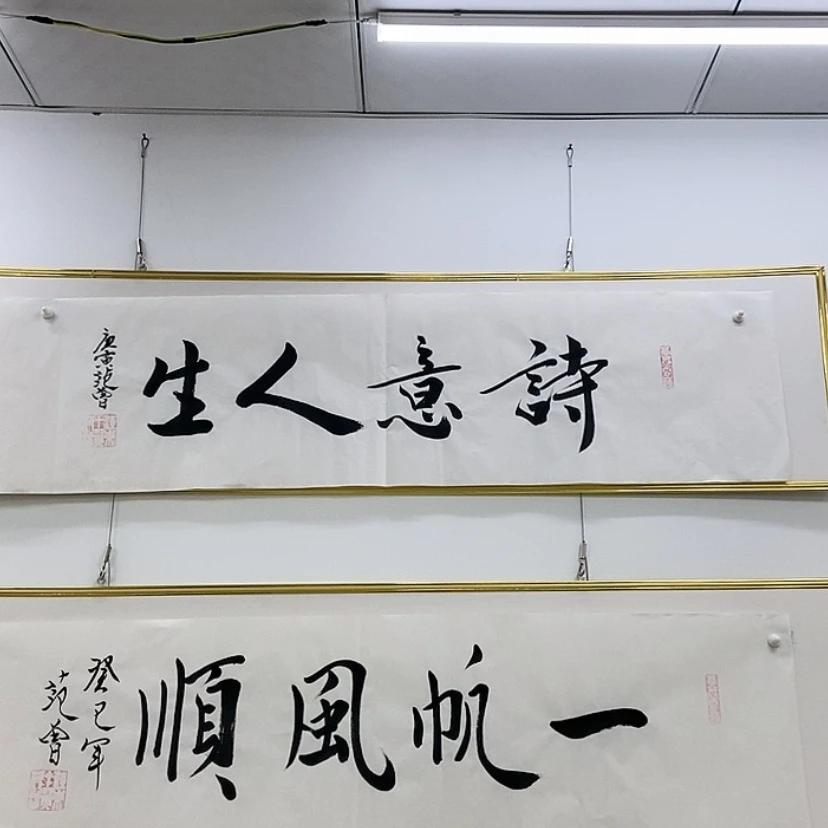 詩意人生
庚寅范曾
一帆風順
癸巳年
范曾